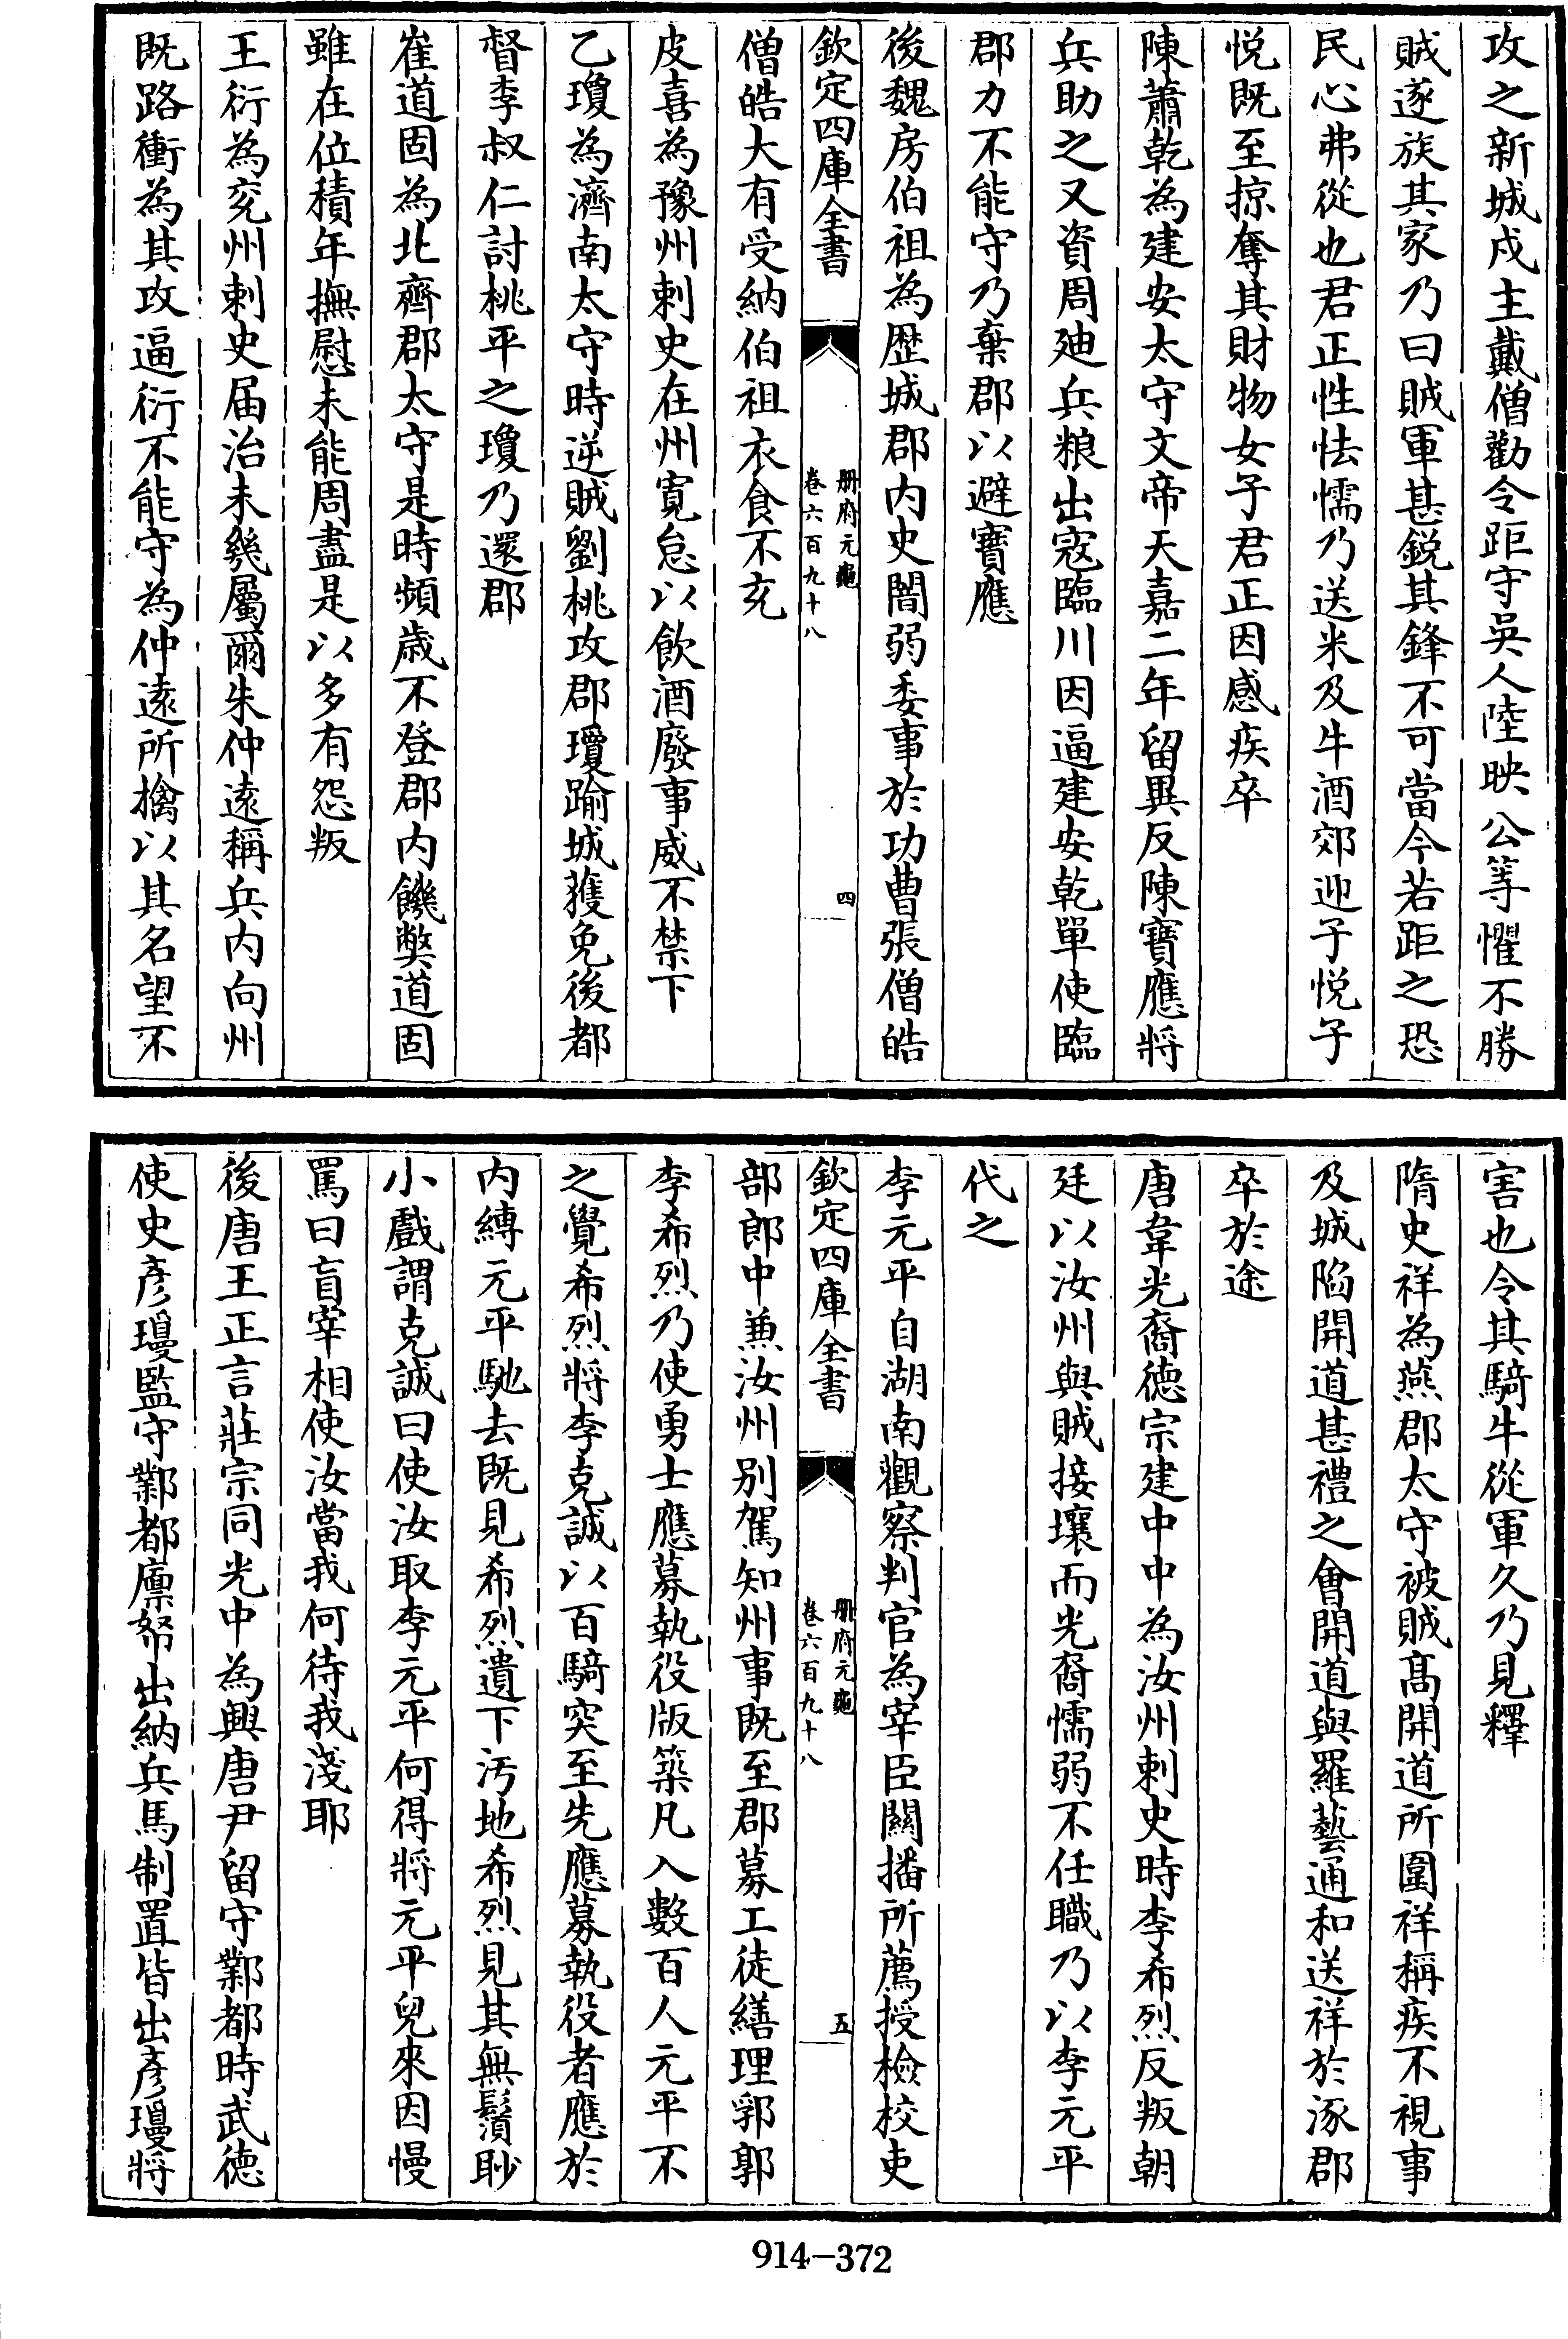 攻之新城戍主戴僧勸令距守吳人陸映公等懼不勝
賊遂族其家乃曰賊軍甚鋭其鋒不可當今若距之恐
民心弗從也君正性怯懦乃送米及牛酒郊迎子悦子
悦既至掠奪其財物女子君正因感疾卒
陳蕭乾為建安太守文帝天嘉二年留異反陳寶應將
兵助之又資周廸兵粮出寇臨川因逼建安乾單使臨
郡力不能守乃棄郡以避寶應
後魏房伯祖為歴城郡内史闇弱委事於功曹張僧皓
欽定四庫全書
册府元龜
卷六百九十八
四
僧皓大有受納伯祖衣食不充
皮喜為豫州刺史在州寛怠以飲酒廢事威不禁下
乙瓊為濟南太守時逆賊劉桃攻郡瓊踰城獲免後都
督李叔仁討桃平之瓊乃還郡
崔道固為北齊郡太守是時頻歳不登郡内饑獘道固
雖在位積年撫慰未能周盡是以多有怨叛
王衍為兖州刺史届治未幾屬爾朱仲遠稱兵内向州
既路衝為其攻逼衍不能守為仲遠所擒以其名望不
害也令其騎牛從軍久乃見釋
隋史祥為燕郡太守被賊髙開道所圍祥稱疾不視事
及城陷開道甚禮之會開道與羅藝通和送祥於涿郡
卒於途
唐韋光裔徳宗建中中為汝州刺史時李希烈反叛朝
廷以汝州與賊接壤而光裔懦弱不任職乃以李元平
代之
李元平自湖南觀察判官為宰臣關播所薦授檢校吏
欽定四庫全書
册府元龜
卷六百九十八
五
部郎中兼汝州别駕知州事既至郡募工徒繕理郛郭
李希烈乃使勇士應募執役版築凡入數百人元平不
之覺希烈將李克誠以百騎突至先應募執役者應於
内縛元平馳去既見希烈遺下汚地希烈見其無鬚眇
小戲謂克誠曰使汝取李元平何得將元平兒來因慢
罵曰盲宰相使汝當我何待我淺耶
後唐王正言莊宗同光中為興唐尹留守鄴都時武徳
使史彦瓊監守鄴都廪帑出納兵馬制置皆出彦瓊將
914-372